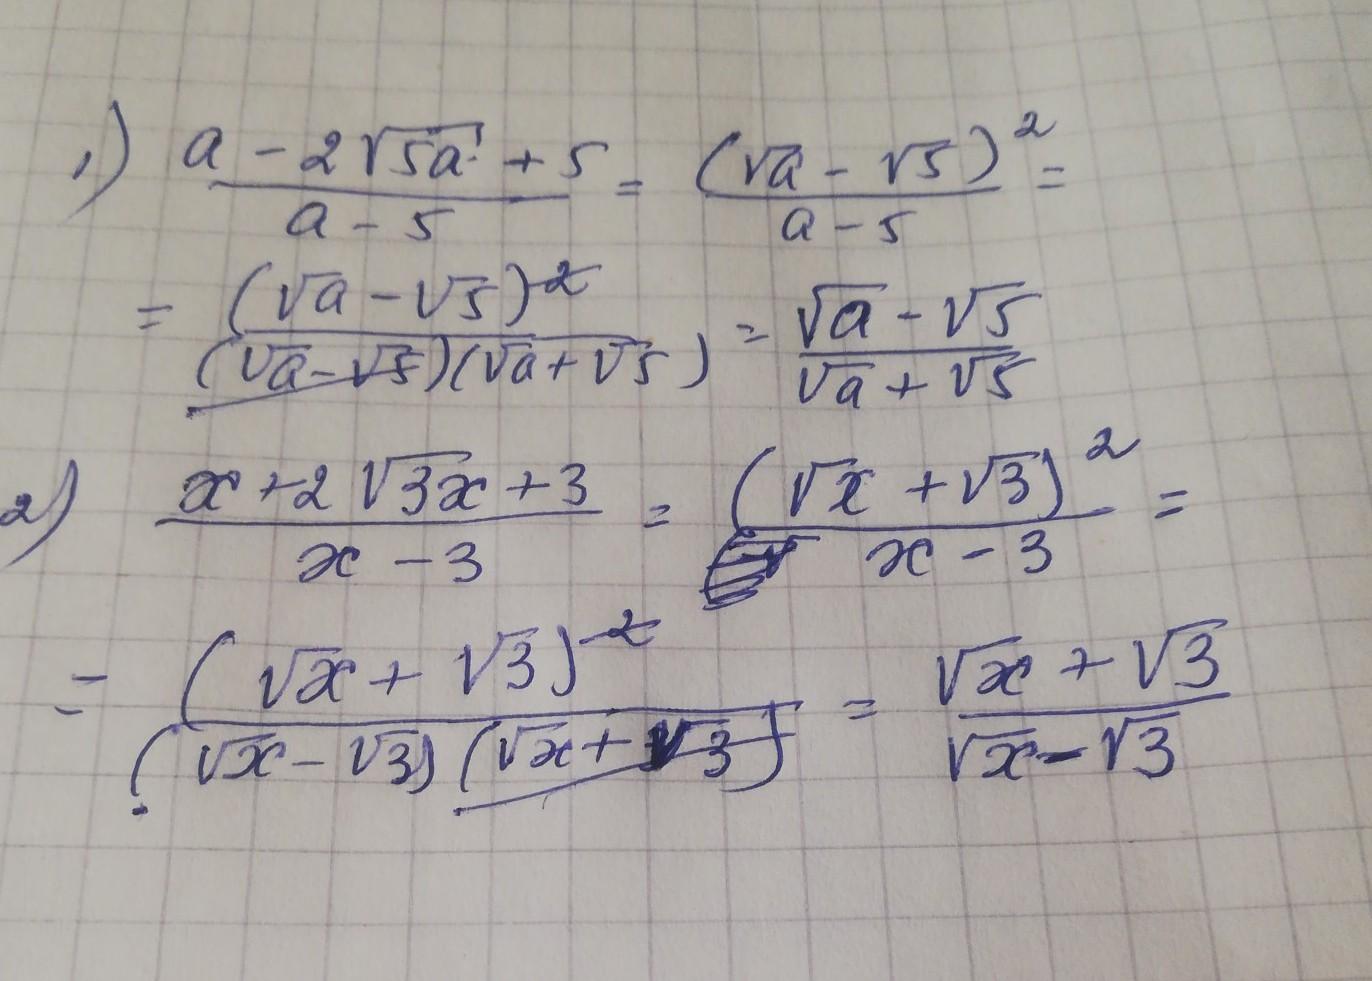 1) (a - 2√5a + 5)/(a - 5) = (√a - √5)²/(a - 5) =
= (√a - √5)²/((√a - √5)(√a + √5)) = (√a - √5)/(√a + √5)
2) (x + 2√3x + 3)/(x - 3) = (√x + √3)²/(x - 3) =
= (√x + √3)²/((√x - √3)(√x + √3)) = (√x + √3)/(√x - √3)